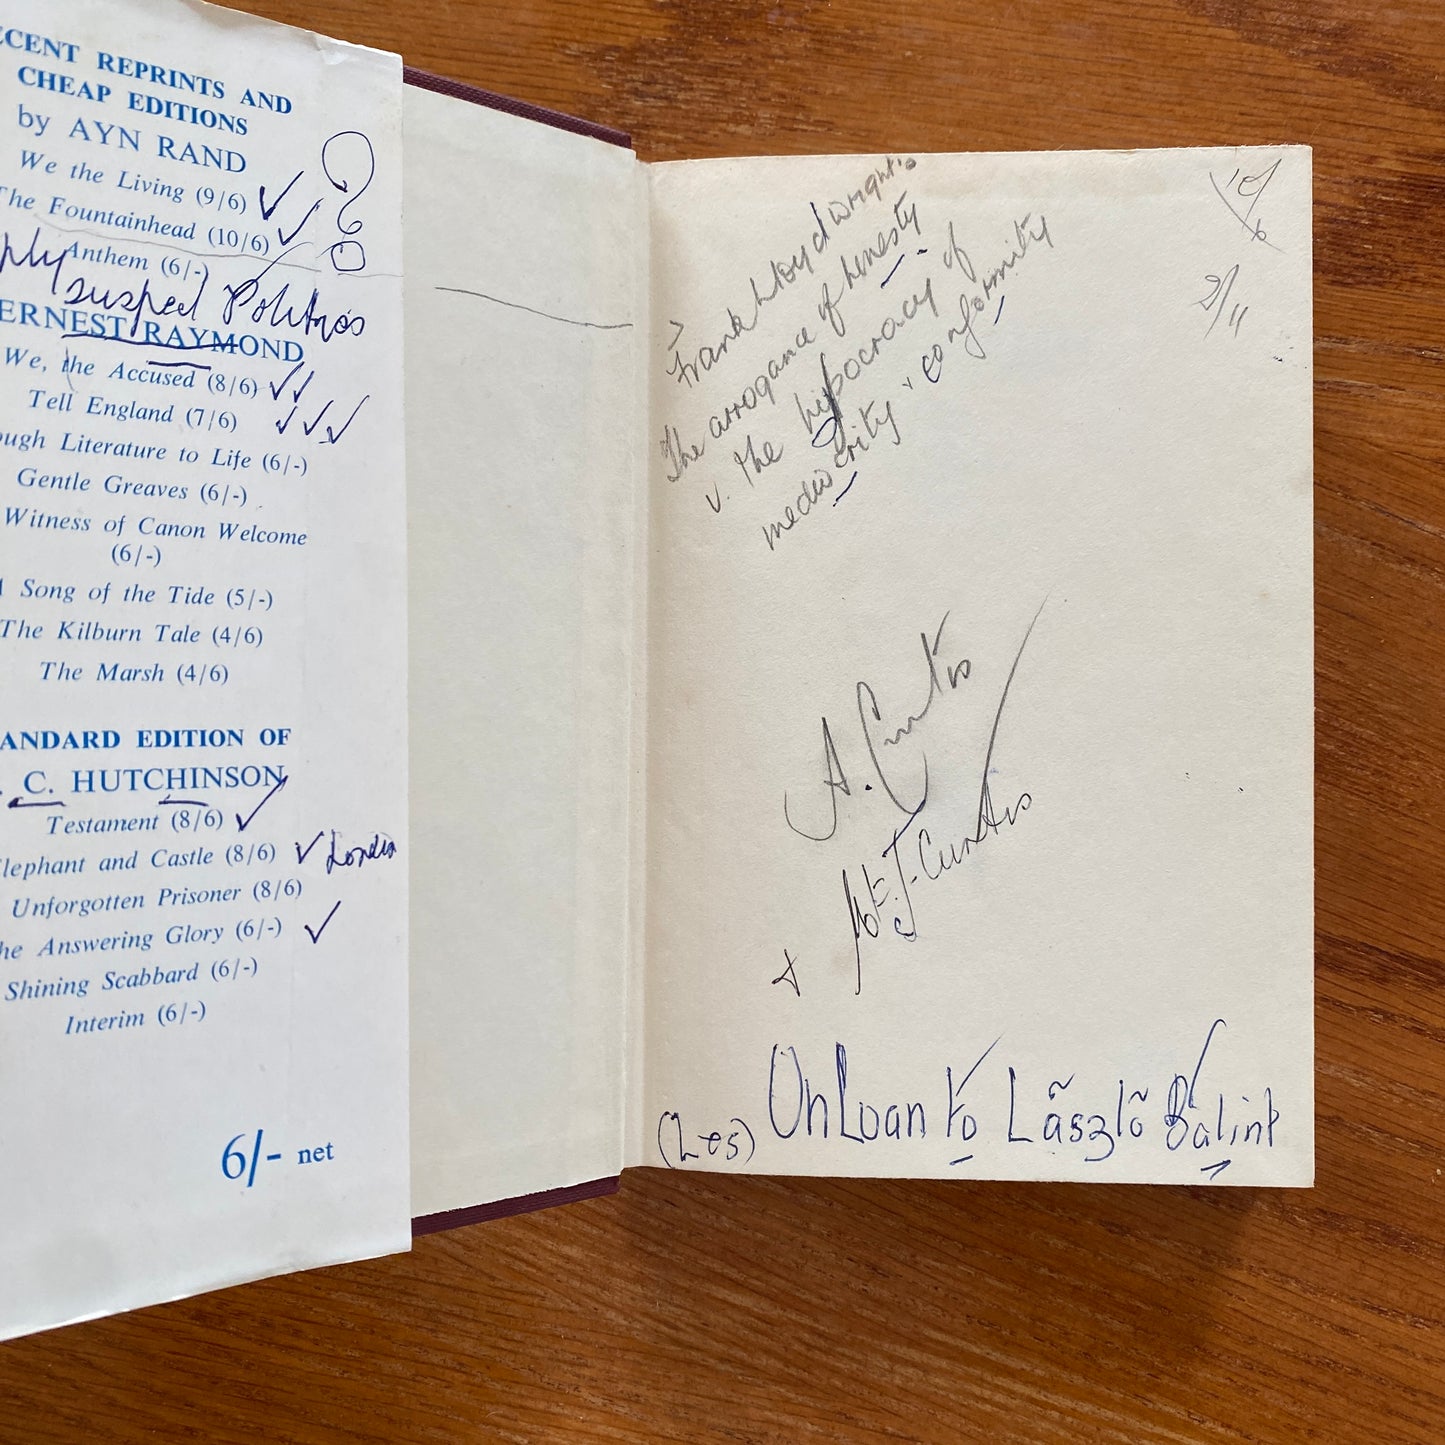 ECENT REPRINTS AND
CHEAP EDITIONS
by AYN RAND
We the Living (9/6)
The Fountainhead (10/6)
Anthem (6/-)
ply suspect Politics
ERNEST RAYMOND
We, the Accused (8/6)
Tell England (7/6)
ough Literature to Life (6/-)
Gentle Greaves (6/-)
Witness of Canon Welcome
(6/-)
Song of the Tide (5/-)
The Kilburn Tale (4/6)
The Marsh (4/6)
ANDARD EDITION OF
. C. HUTCHINSON
Testament (8/6)
Elephant and Castle (8/6) London
Unforgotten Prisoner (8/6)
he Answering Glory (6/-)
Shining Scabbard (6/-)
Interim (6/-)
6/- net
Frank Lloyd Wright's
The arrogance of honesty
v. the hypocracy of
mediocrity + conformity
10/6
2/11
A. Curtis
+ M.E.J. Curtis
(Les) On Loan to László Bálint